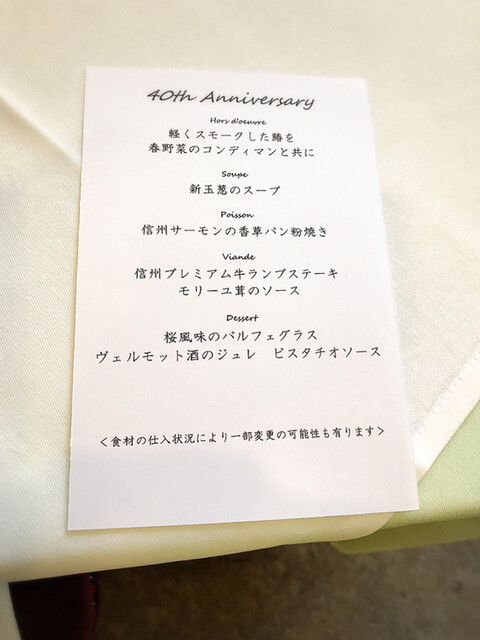 40th Anniversary
Hors d'oeuvre
軽くスモークした鰆を
春野菜のコンディマンと共に
Soupe
新玉葱のスープ
Poisson
信州サーモンの香草パン粉焼き
Viande
信州プレミアム牛ランプステーキ
モリーユ茸のソース
Dessert
桜風味のパルフェグラス
ヴェルモット酒のジュレ　ピスタチオソース
＜食材の仕入状況により一部変更の可能性も有ります＞